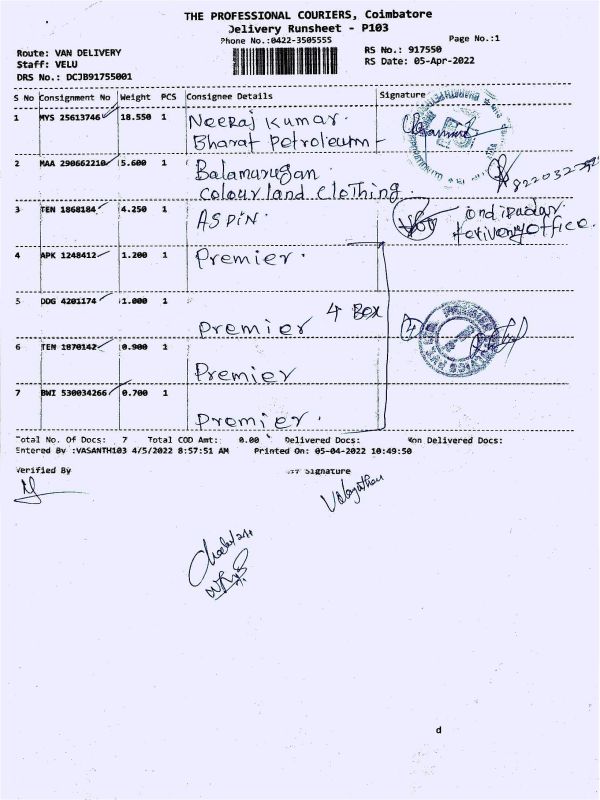 THE PROFESSIONAL COURIERS, Coimbatore
Delivery Runsheet - P103
Phone No.:0422-3505555
Page No.:1
Route: VAN DELIVERY
RS No.: 917550
Staff: VELU
RS Date: 05-Apr-2022
DRS No.: DCJB91755001
S No Consignment No Weight PCS Consignee Details Signature
1 MYS 25613746 18.550 1 Neeraj Kumar.
Bharat Petroleum
2 MAA 290662210 5.600 1 Balamurugan
Colour land Clothing.
3 TEN 1868184 4.250 1 ASPIN.
4 APK 1248412 1.200 1 Premier.
5 DDG 4201174 1.000 1 Premier 4 Box
6 TEN 1870142 0.900 1 Premier
7 BWI 530034266 0.700 1 Premier.
Total No. Of Docs: 7 Total COD Amt: 0.00 Delivered Docs: Non Delivered Docs:
Entered By :VASANTH103 4/5/2022 8:57:51 AM Printed On: 05-04-2022 10:49:50
Verified By Signature
d